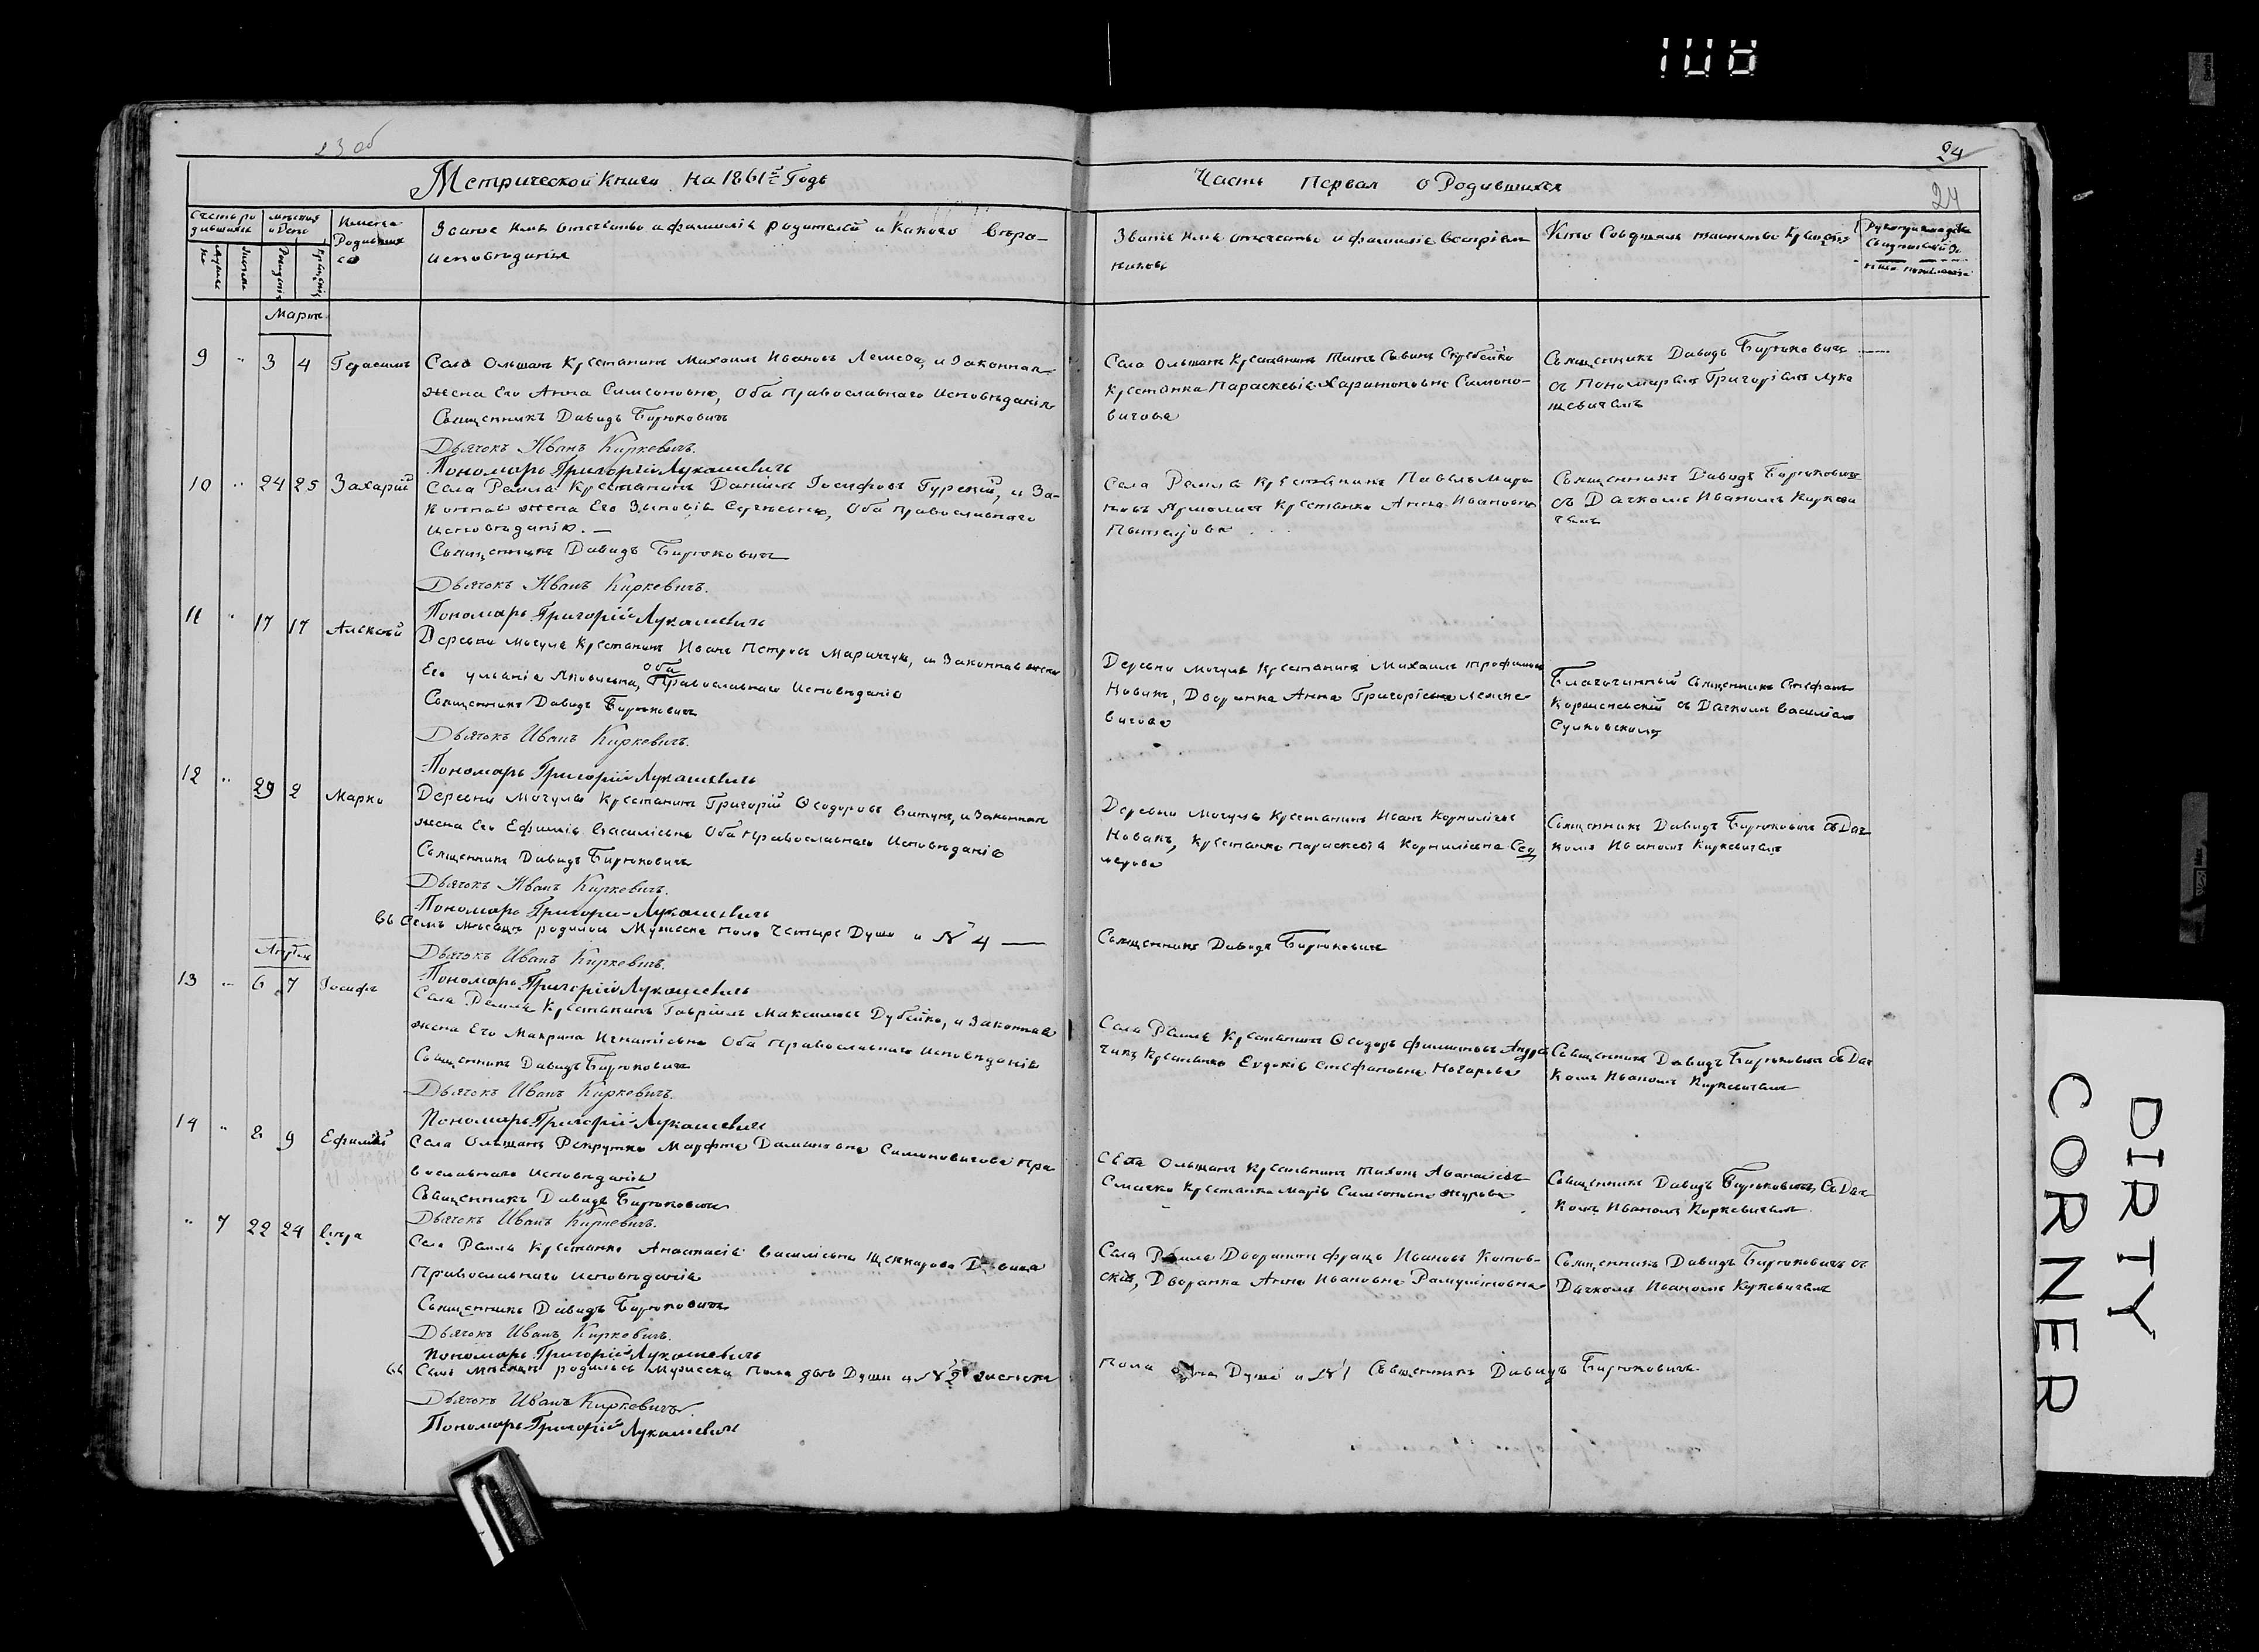 108
23 об
24
24
Метрической Книги на 1861й Годъ
Часть Первая о Родившихся
Месяцъ и День
Имена Родившихся
Званіе Имя отечество и фамилія родителей и какого вѣро-
исповѣданія
Званіе Имя отечество и фамилія воспріем
никовъ
Кто Совершалъ таинство Крещенія
Мартъ
9 " 3 4 Герасимъ
Села Ольшанъ Крестьянинъ Михаилъ Ивановъ Лемеза, и Законная
жена Его Анна Симеоновна, Оба Православнаго Исповѣданія
Священникъ Давидъ Бирюковичъ
Дьячокъ Иванъ Киркевичъ.
Пономарь Григорій Лукашевичъ
Села Ольшанъ Крестьянинъ Титъ Савинъ
Крестьянка Параскевія Харитоновна Симоно-
вичова
Священникъ Давидъ Бирюковичъ
съ Пономаремъ Григоріемъ Лука
шевичемъ
10 " 24 25 Захарій
Села Ремля Крестьянинъ Даніилъ Іосифовъ Гурскій, и За-
конная жена Его Зиновія Сергѣевна, Оба Православнаго
исповѣданію. —
Священникъ Давидъ Бирюковичъ
Дьячокъ Иванъ Киркевичъ.
Пономарь Григорій Лукашевичъ
Села Ремля Крестьянинъ Павелъ Миро
новъ Ярмоличъ Крестьянка Анна Ивановна
Священникъ Давидъ Бирюковичъ
съ Дячкомъ Иваномъ Киркеви
чемъ
11 " 17 17 Алексѣй
Деревни Могуля Крестьянинъ Иванъ Петровъ Маринчукъ, и Законная жена
Его Ульянія Яковлевна, Оба Православнаго Исповѣданія
Священникъ Давидъ Бирюковичъ
Дьячокъ Иванъ Киркевичъ.
Пономарь Григорій Лукашевичъ
Деревни Могуля Крестьянинъ Михаилъ Трофимовъ
Новикъ, Дворянка Анна Григоріевна
вичова
Благочинный Священникъ Стефанъ
съ Дячкомъ Василіемъ
Сулковскимъ
12 " 29 2 Марко
Деревни Могуля Крестьянинъ Григорій Ѳеодоровъ Витунъ, и Законная
жена Его Ефимія Василіевна Оба Православнаго Исповѣданія
Священникъ Давидъ Бирюковичъ
Дьячокъ Иванъ Киркевичъ.
Пономарь Григорій Лукашевичъ
Деревни Могуля Крестьянинъ Иванъ Корниліевъ
Новикъ, Крестьянка Параскевія Корниліевна
Священникъ Давидъ Бирюковичъ съ Дяч
комъ Иваномъ Киркевичемъ
Въ Семъ Мѣсяцѣ родилось Мужеска пола Четыре Души и № 4 —
Священникъ Давидъ Бирюковичъ
Дьячокъ Иванъ Киркевичъ.
Пономарь Григорій Лукашевичъ
Апрѣль
13 " 6 7 Іосифъ
Села Ремля Крестьянинъ Гавріилъ Максимовъ Дубейко, и Законная
жена Его Макрина Игнатіевна Оба Православнаго Исповѣданія
Священникъ Давидъ Бирюковичъ
Дьячокъ Иванъ Киркевичъ.
Пономарь Григорій Лукашевичъ
Села Ремля Крестьянинъ Ѳеодоръ Филиповъ Андрей
чикъ Крестьянка Евдокія Стефановна Ночарова
Священникъ Давидъ Бирюковичъ съ Дяч
комъ Иваномъ Киркевичемъ
14 " 8 9 Ефимій
Села Ольшанъ Рекрутка Марфа Даміановна Симоновичова Пра
вославнаго Исповѣданія
Священникъ Давидъ Бирюковичъ
Дьячокъ Иванъ Киркевичъ.
Села Ольшанъ Крестьянинъ Тихонъ Аѳанасіевъ
Крестьянка Марія Симеоновна Журова
Священникъ Давидъ Бирюковичъ, съ Дяч
комъ Иваномъ Киркевичемъ
" 7 22 24 Вѣра
Села Ремля Крестьянка Анастасія Василіевна Девица
Православнаго Исповѣданія
Священникъ Давидъ Бирюковичъ
Дьячокъ Иванъ Киркевичъ.
Пономарь Григорій Лукашевичъ
Села Ремля Дворянинъ Францъ Ивановъ Котов-
скій, Дворянка Анна Ивановна
Священникъ Давидъ Бирюковичъ съ
Дячкомъ Иваномъ Киркевичемъ
Въ Семъ Мѣсяцѣ родилось Мужеска Пола двѣ Души и № 2 женска
пола одна Душа и № 1 Священникъ Давидъ Бирюковичъ.
Дьячокъ Иванъ Киркевичъ
Пономарь Григорій Лукашевичъ
DIRTY
CORNER